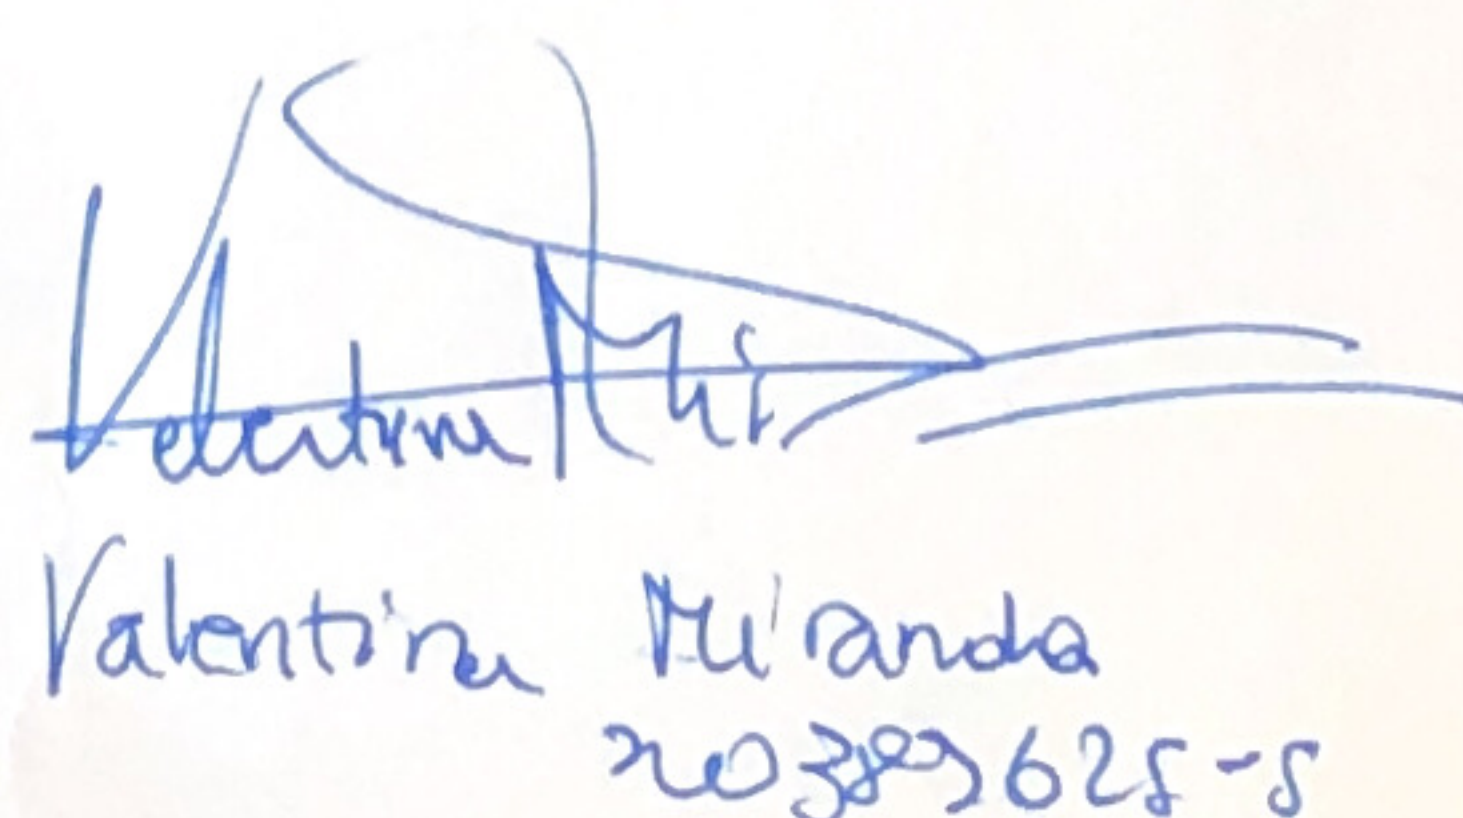 Valentina Mir
Valentina Miranda
20389625-5